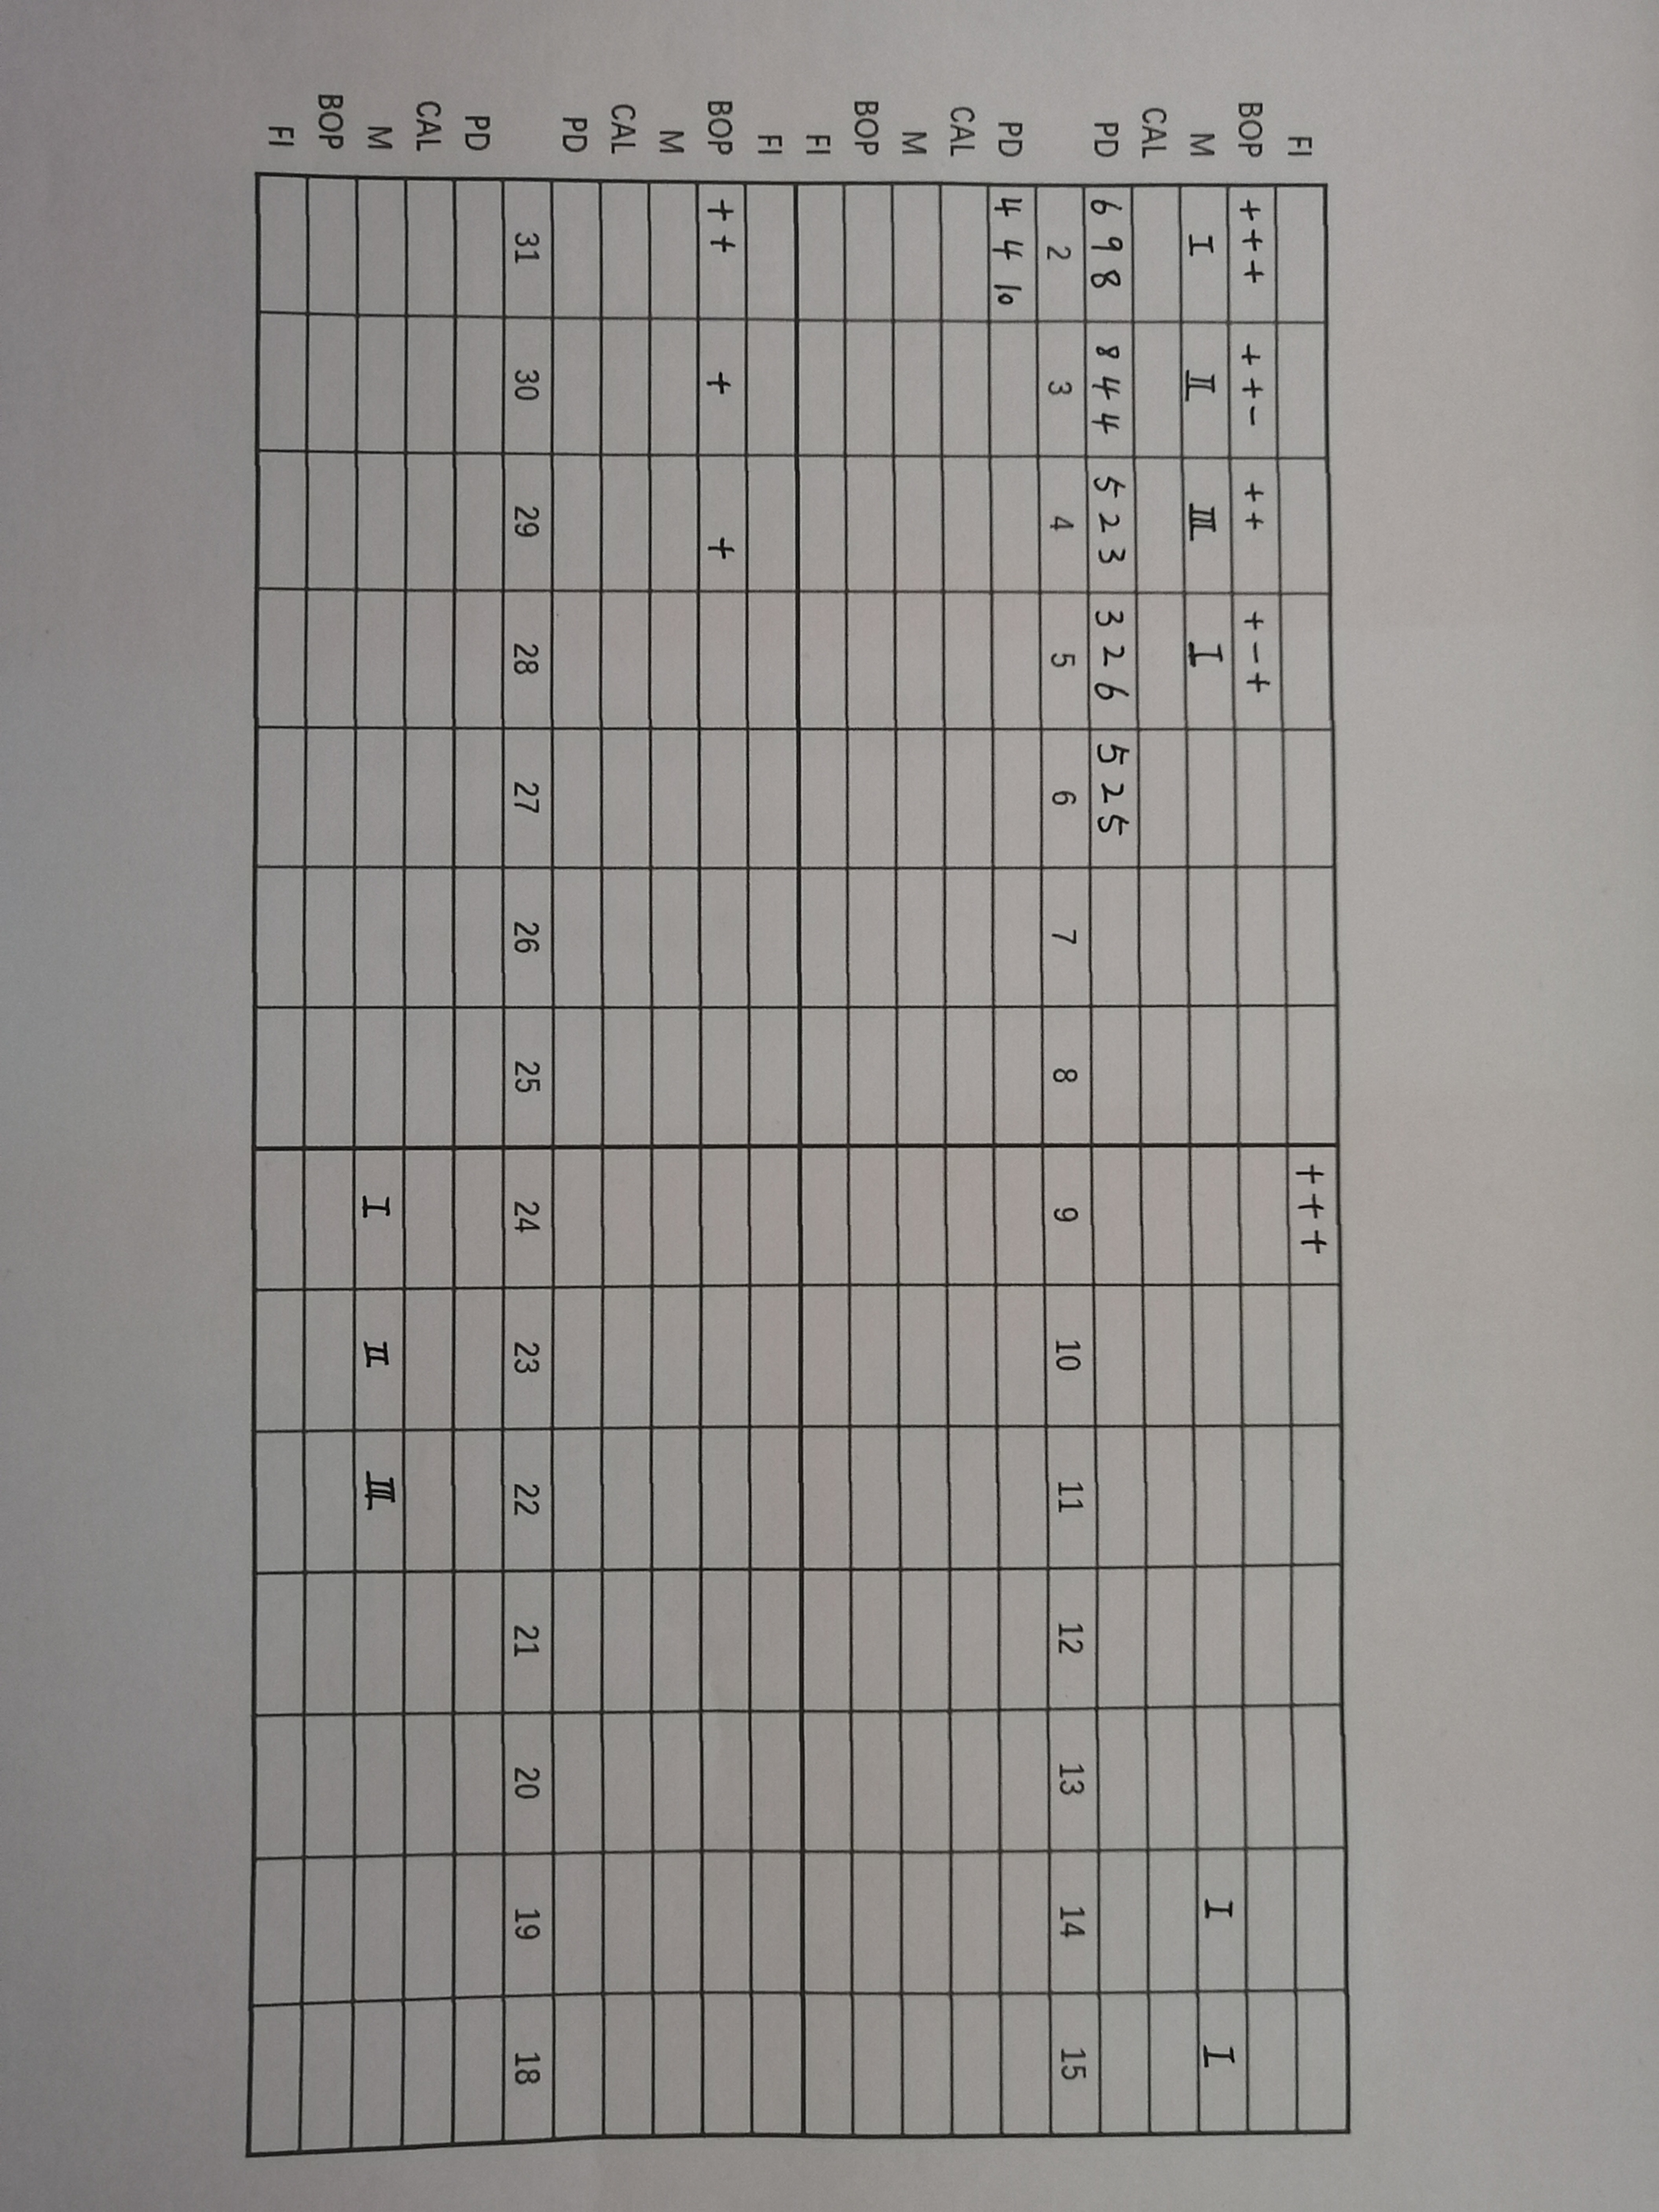 FI +++
BOP +++ ++- ++ +-+
M I II III I I I
CAL
PD 6 9 8 8 4 4 5 2 3 3 2 6 5 2 5
2 3 4 5 6 7 8 9 10 11 12 13 14 15
PD 4 4 10
CAL
M
BOP
FI
FI
BOP ++ + +
M
CAL
PD
31 30 29 28 27 26 25 24 23 22 21 20 19 18
PD
CAL
M I II III
BOP
FI